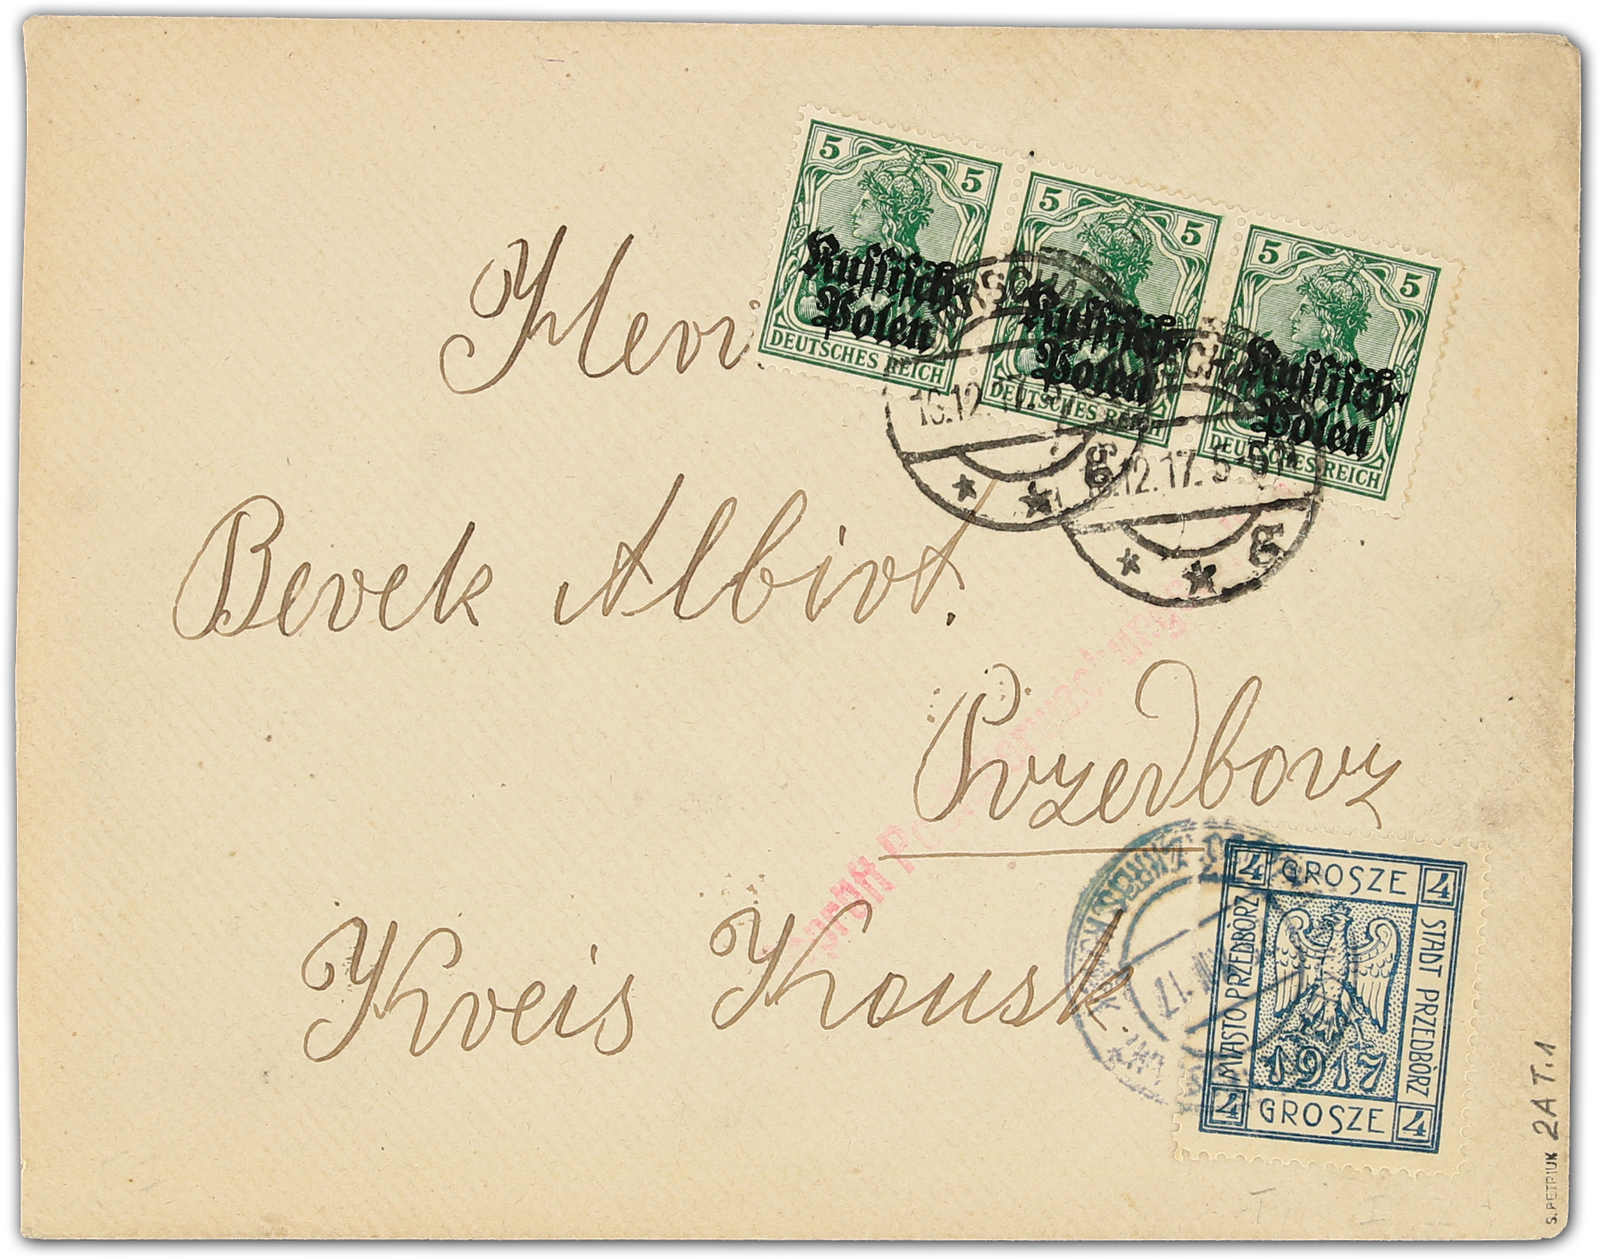 5 5
Russisch-
Polen
DEUTSCHES REICH
5 5
Russisch-
Polen
DEUTSCHES REICH
5 5
Russisch-
Polen
DEUTSCHES REICH
12.17. 5-6
g
g
Herr
Berek Albirt.
Przedborz
Kreis Konsk.
Geprüft
4 GROSZE 4
MIASTO PRZEDBÓRZ
STADT PRZEDBÓRZ
1917
4 GROSZE 4
17
S. PETRIUK 2A T.1